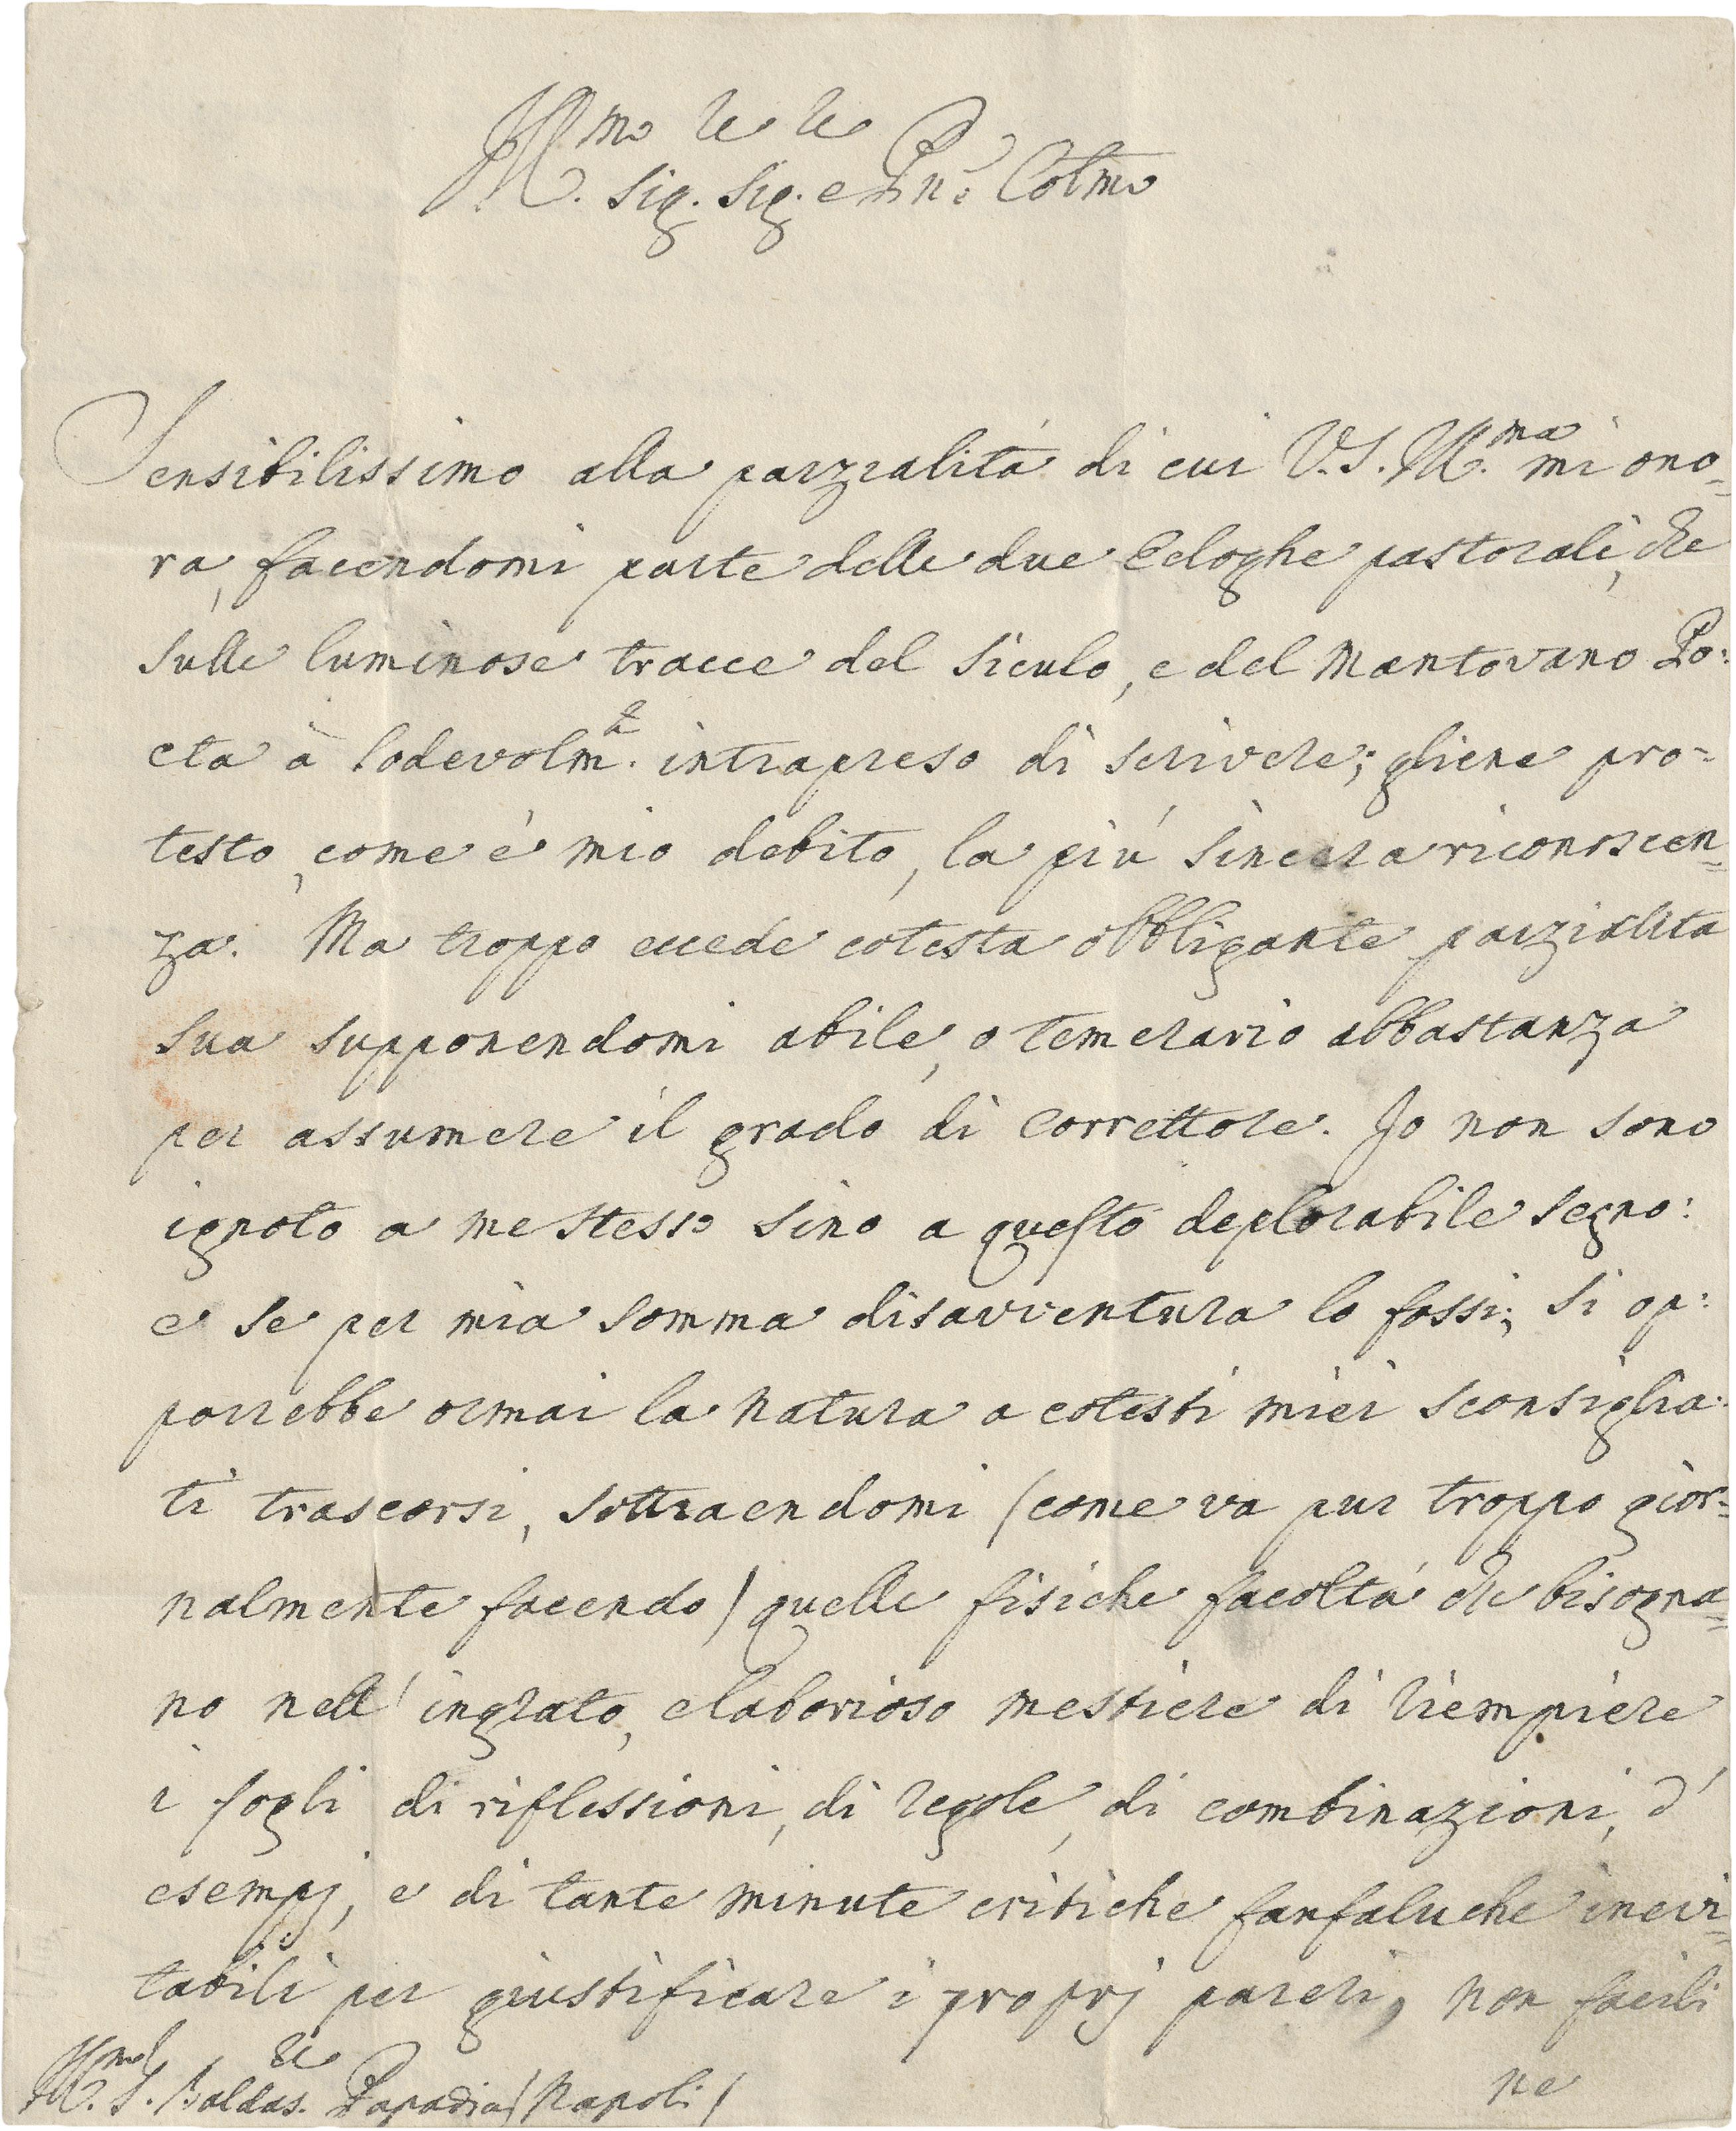 Ill.mo Sig.re Sig.re e P.ne Colmo
Sensibilissimo alla parzialità di cui V.S. Ill.ma mi ono=
ra, facendomi parte delle due Ecloghe pastorali, che
sulle luminose tracce del Siculo, e del Mantovano Po:
eta à lodevolm.te intrapreso di scrivere; gliene pro=
testo, come è mio debito, la più sincera riconoscen=
za. Ma troppo eccede cotesta obbligante parzialita
sua supponendomi abile, o temerario abbastanza
per assumere il grado di Correttore. Io non sono
ignoto a me stesso sino a questo deplorabile segno:
e se per mia somma disavventura lo fossi; si op:
porrebbe ormai la natura a cotesti miei sconsiglia:
ti trascorsi, sottraendomi (come va pur troppo gior=
nalmente facendo) quelle fisiche facoltà che bisogna=
no nell' ingrato, e laborioso mestiere di riempiere
i fogli di riflessioni, di regole, di combinazioni, d'
esempj, e di tante minute critiche fanfaluche inevi=
tabili per giustificare i proprj pareri, non facili
ne
Ill.mo S.r Baldas.re Papadia (Napoli)